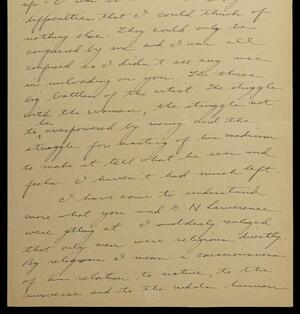 difficulties that I could think of
nothing else. They could only be
conquered by me and I was all
confused so I didn't see any use
in unloading on you. The three
big battles of the artist. The struggle
with the woman, the struggle not
to be overpowered by money and the
struggle for mastery of his medium
to make it tell what he sees and
feels. I haven't had much left
I have come to understand
more what you and D H Lawerence
were getting at. I suddenly realized
that only men were religious directly.
By religious I mean a consciousness
of his relation to nature, to the
universe and to the whole human